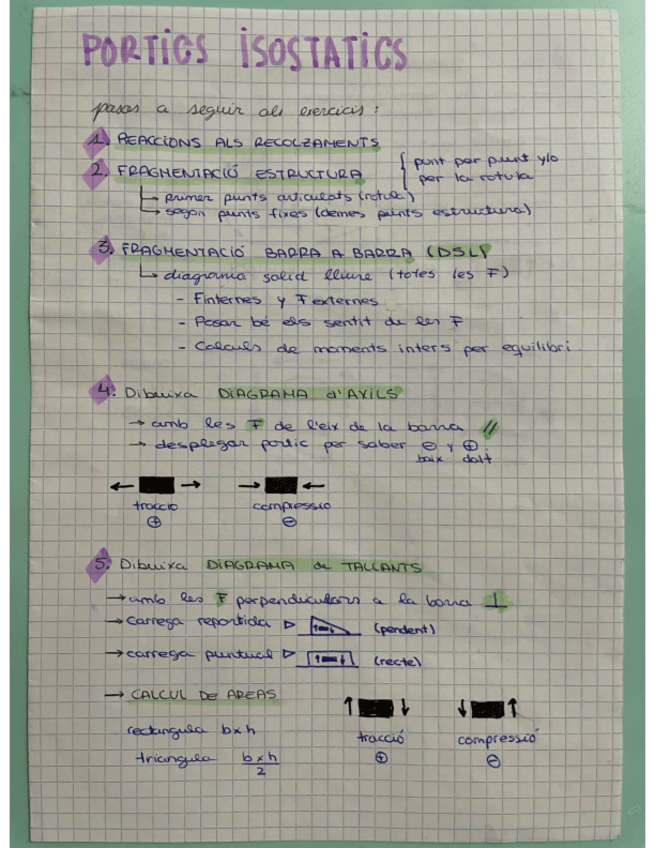 PORTICS ISOSTATICS
pasos a seguir als exercicis:
1. REACCIONS ALS RECOLZAMENTS
2. FRAGMENTACIÓ ESTRUCTURA { punt per punt y/o per la rotula
↳ primer punts articulats (rotula)
↳ segon punts fixes (demes punts estructura)
3. FRAGMENTACIÓ BARRA A BARRA (DSL)
↳ diagrama solid lliure (totes les F)
- F internes y F externes
- Posar bé els sentit de les F
- Calculs de moments inters per equilibri.
4. Dibuixa DIAGRAMA d'AXILS
→ amb les F de l'eix de la barra //
→ desplegar portic per saber ⊖ y ⊕.
baix dalt
← → → ←
traccio compressio
⊕ ⊖
5. Dibuixa DIAGRAMA de TALLANTS
→ amb les F perpendiculars a la barra ⊥
→ Carrega repartida ▷ (pendent)
→ carrega puntual ▷ (recte)
→ CALCUL DE AREAS
↑ ↓ ↓ ↑
rectangula bxh
tracció compressió
triangula bxh
2
⊕ ⊖